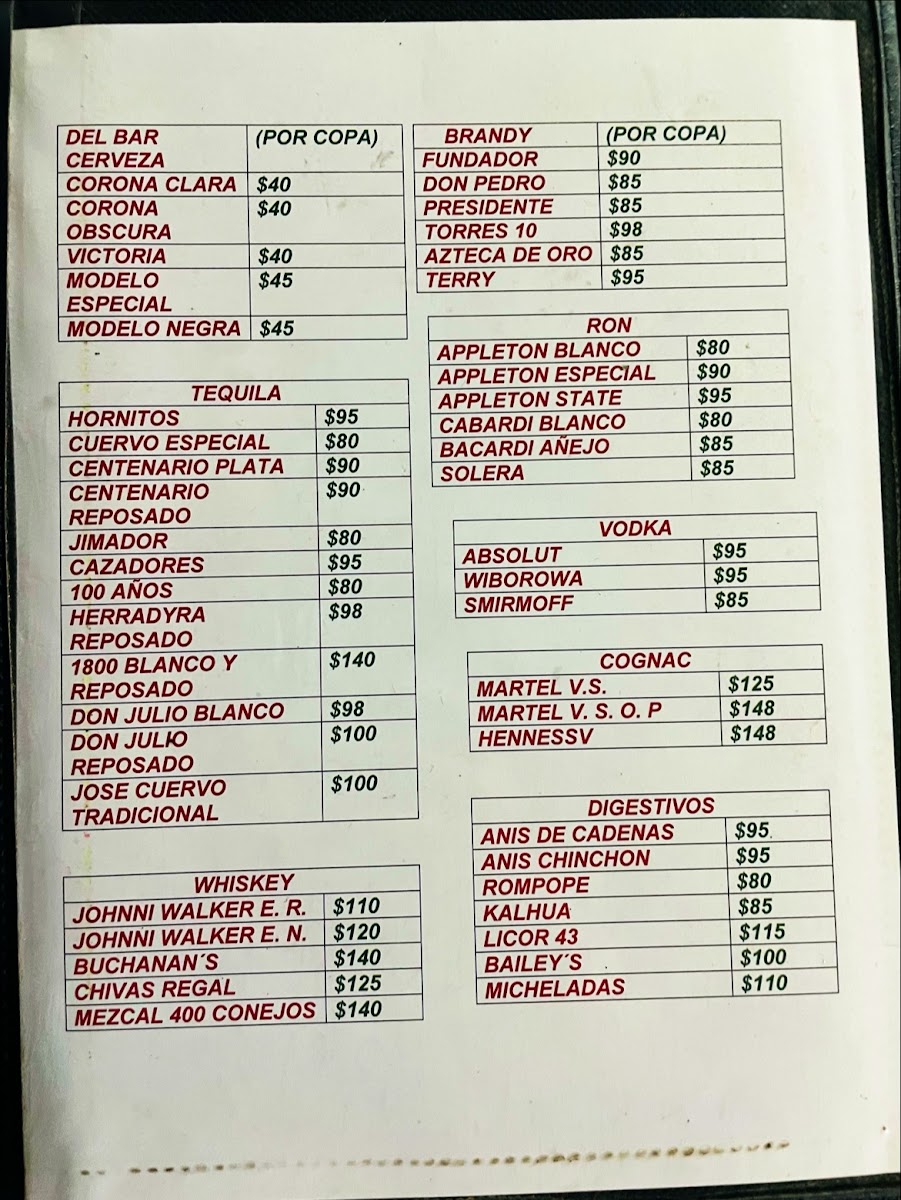 DEL BAR (POR COPA)
CERVEZA
CORONA CLARA $40
CORONA $40
OBSCURA
VICTORIA $40
MODELO $45
ESPECIAL
MODELO NEGRA $45
TEQUILA
HORNITOS $95
CUERVO ESPECIAL $80
CENTENARIO PLATA $90
CENTENARIO $90
REPOSADO
JIMADOR $80
CAZADORES $95
100 AÑOS $80
HERRADYRA $98
REPOSADO
1800 BLANCO Y $140
REPOSADO
DON JULIO BLANCO $98
DON JULIO $100
REPOSADO
JOSE CUERVO $100
TRADICIONAL
WHISKEY
JOHNNI WALKER E. R. $110
JOHNNI WALKER E. N. $120
BUCHANAN´S $140
CHIVAS REGAL $125
MEZCAL 400 CONEJOS $140
BRANDY (POR COPA)
FUNDADOR $90
DON PEDRO $85
PRESIDENTE $85
TORRES 10 $98
AZTECA DE ORO $85
TERRY $95
RON
APPLETON BLANCO $80
APPLETON ESPECIAL $90
APPLETON STATE $95
CABARDI BLANCO $80
BACARDI AÑEJO $85
SOLERA $85
VODKA
ABSOLUT $95
WIBOROWA $95
SMIRMOFF $85
COGNAC
MARTEL V.S. $125
MARTEL V. S. O. P $148
HENNESSV $148
DIGESTIVOS
ANIS DE CADENAS $95
ANIS CHINCHON $95
ROMPOPE $80
KALHUA $85
LICOR 43 $115
BAILEY´S $100
MICHELADAS $110